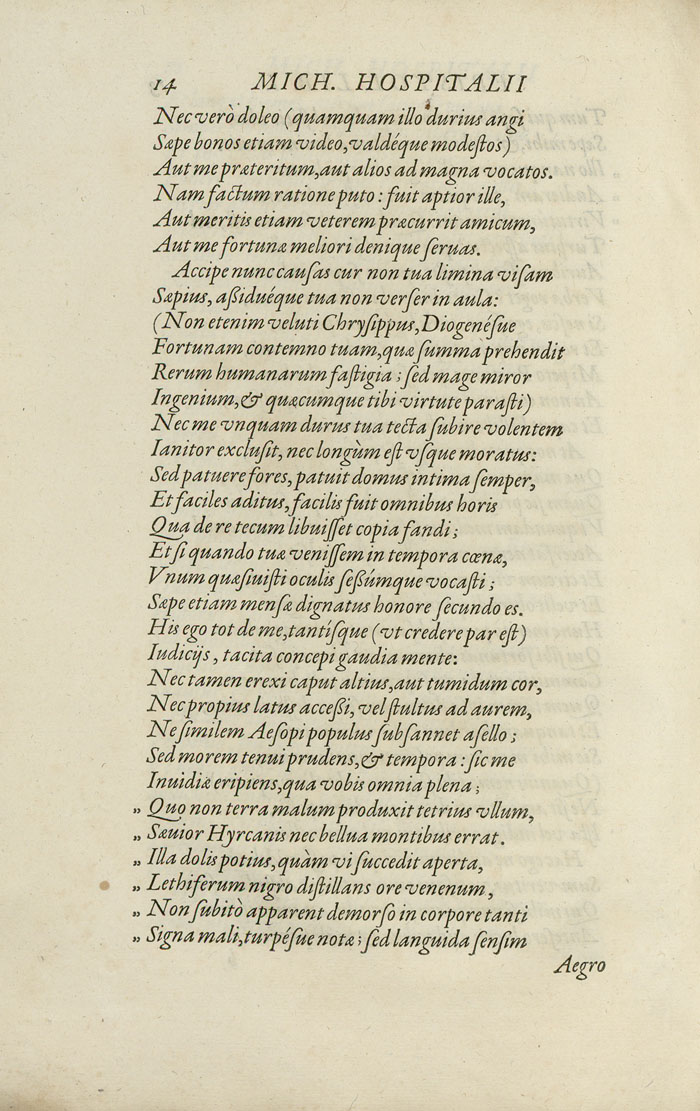 14 MICH. HOSPITALII
Nec verò doleo (quamquam illo durius angi
Sæpe bonos etiam video, valdéque modeſtos)
Aut me præteritum, aut alios ad magna vocatos.
Nam factum ratione puto : fuit aptior ille,
Aut meritis etiam veterem præcurrit amicum,
Aut me fortunæ meliori denique ſeruas.
Accipe nunc cauſas cur non tua limina viſam
Sæpius, aßiduéque tua non verſer in aula:
(Non etenim veluti Chryſippus, Diogenéſue
Fortunam contemno tuam, quæ ſumma prehendit
Rerum humanarum faſtigia ; ſed mage miror
Ingenium, & quæcumque tibi virtute paraſti)
Nec me vnquam durus tua tecta ſubire volentem
Ianitor excluſit, nec longùm eſt vſque moratus:
Sed patuere fores, patuit domus intima ſemper,
Et faciles aditus, facilis fuit omnibus horis
Qua de re tecum libuiſſet copia fandi ;
Et ſi quando tuæ veniſſem in tempora cœnæ,
Vnum quæſiuiſti oculis ſeßúmque vocaſti ;
Sæpe etiam menſæ dignatus honore ſecundo es.
His ego tot de me, tantíſque (vt credere par eſt)
Iudicijs , tacita concepi gaudia mente:
Nec tamen erexi caput altius, aut tumidum cor,
Nec propius latus acceßi, vel ſtultus ad aurem,
Ne ſimilem Aeſopi populus ſubſannet aſello ;
Sed morem tenui prudens, & tempora : ſic me
Inuidiæ eripiens, qua vobis omnia plena ;
„ Quo non terra malum produxit tetrius vllum,
„ Sæuior Hyrcanis nec bellua montibus errat.
„ Illa dolis potius, quàm vi ſuccedit aperta,
„ Lethiferum nigro diſtillans ore venenum ,
„ Non ſubitò apparent demorſo in corpore tanti
„ Signa mali, turpéſue notæ ; ſed languida ſenſim
Aegro